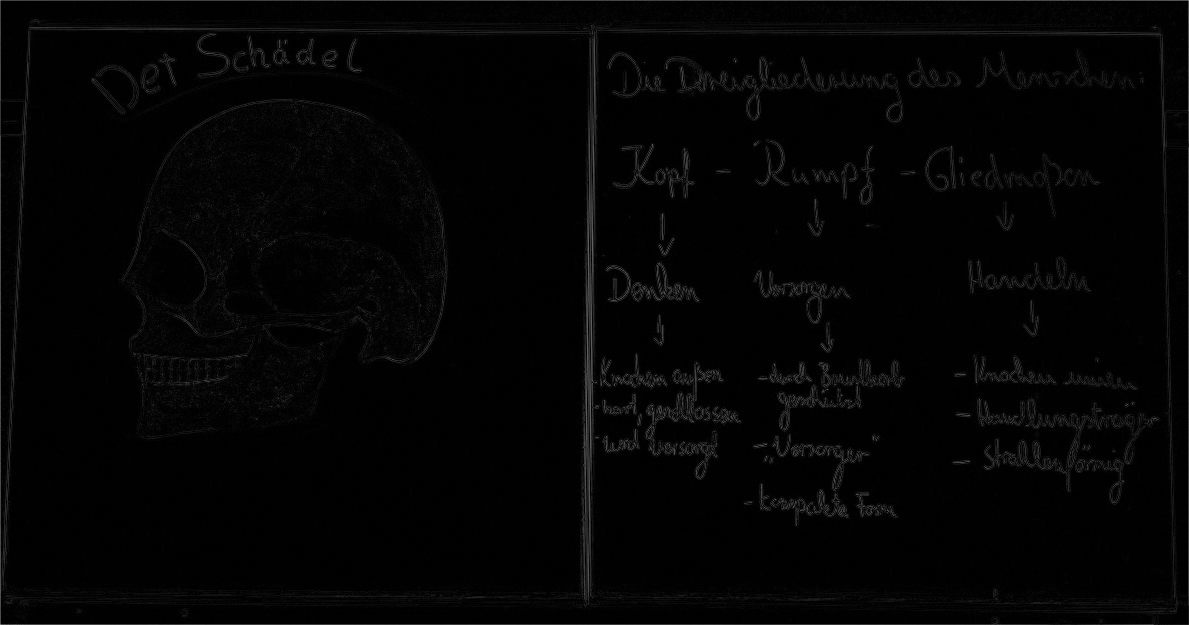 Der Schädel
Die Dreigliederung des Menschen:
Kopf - Rumpf - Gliedmaßen
Denken
Versorgen
Handeln
- Knochen außen
- hart, geschlossen
- wird versorgt
- durch Brustkorb
geschützt
- „Versorger“
- kompakte Form
- Knochen innen
- Handlungsträger
- Strahlenförmig